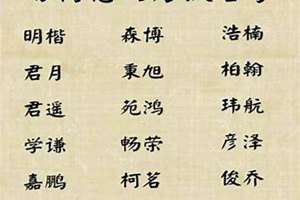 明楷 森博 浩楠
君月 秉旭 柏翰
君遥 苑鸿 玮航
学谦 畅荣 彦泽
嘉鹏 柯茗 俊乔